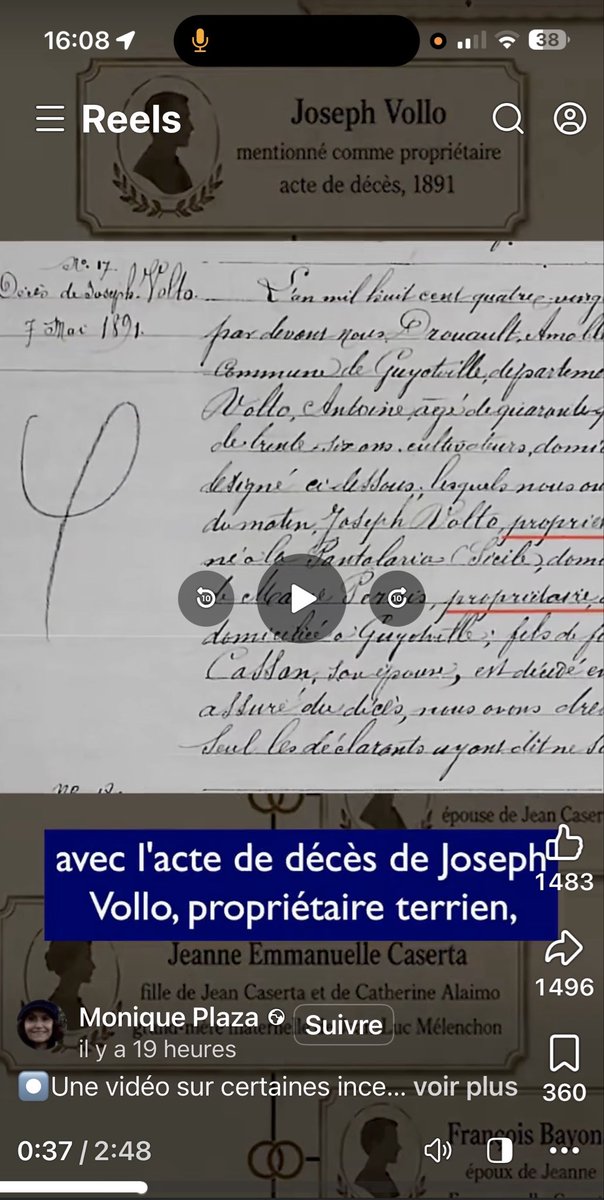 16:08
38
Reels
Joseph Vollo
mentionné comme propriétaire
acte de décès, 1891
No. 17
Décès de Joseph Vollo.
7 Mai 1891.
L'an mil huit cent quatre-ving
par devant nous, Drouault,
Commune de Guyotville, départeme
Vollo, Antoine, âgé de quarante
de trente-six ans, cultivateurs, domi
désigné ci-dessous, lesquels nous on
du matin, Joseph Vollo, proprié
né à la Pantalaria (Sicile), domi
10
10
propriétaire,
domiciliée à Guyotville; fils de f
Cassan, son épouse, est décédé en
assuré du décès, nous avons dre
seul les déclarants ayant dit ne s
épouse de Jean Caser
avec l'acte de décès de Joseph
Vollo, propriétaire terrien,
1483
Jeanne Emmanuelle Caserta
fille de Jean Caserta et de Catherine Alaimo
1496
Monique Plaza
Suivre
Luc Mélenchon
il y a 19 heures
Une vidéo sur certaines ince... voir plus
360
0:37 / 2:48
François Bayon
époux de Jeanne